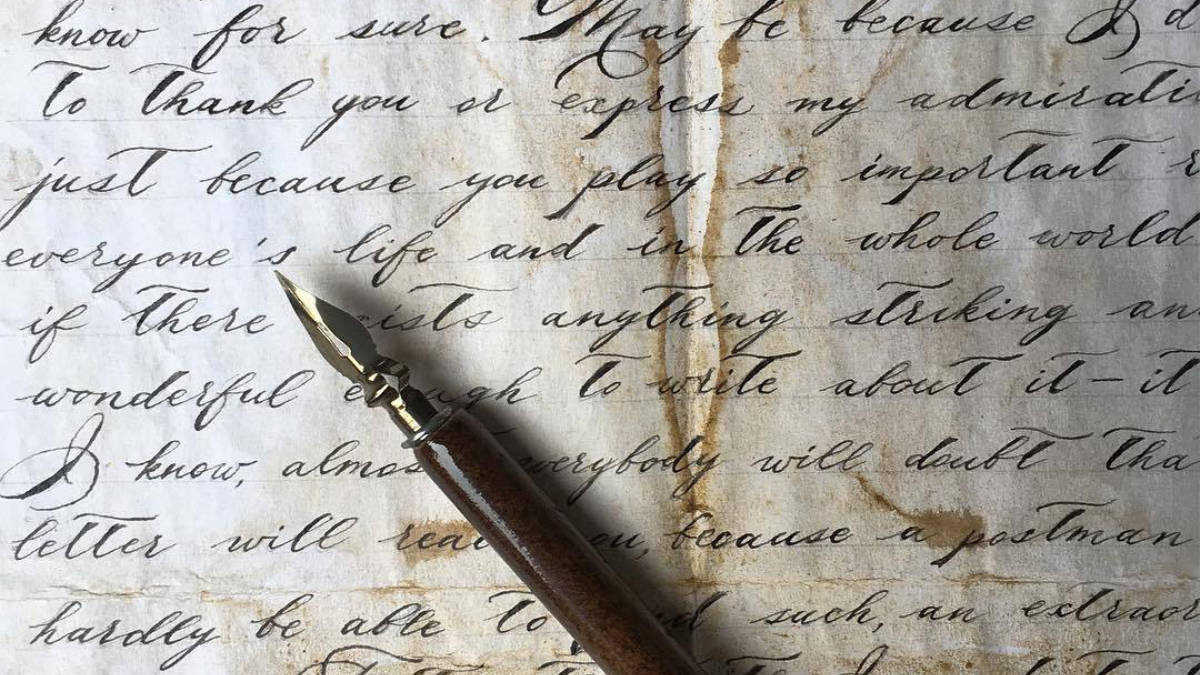 know for sure. May be because I d
to thank you or express my admirati
just because you play so important r
everyone's life and in the whole world
if there ists anything striking an
wonderful to write about it – it
I know, almos verybody will doubt tha
letter will rea ou, because a postman
hardly be able to such, an extraor